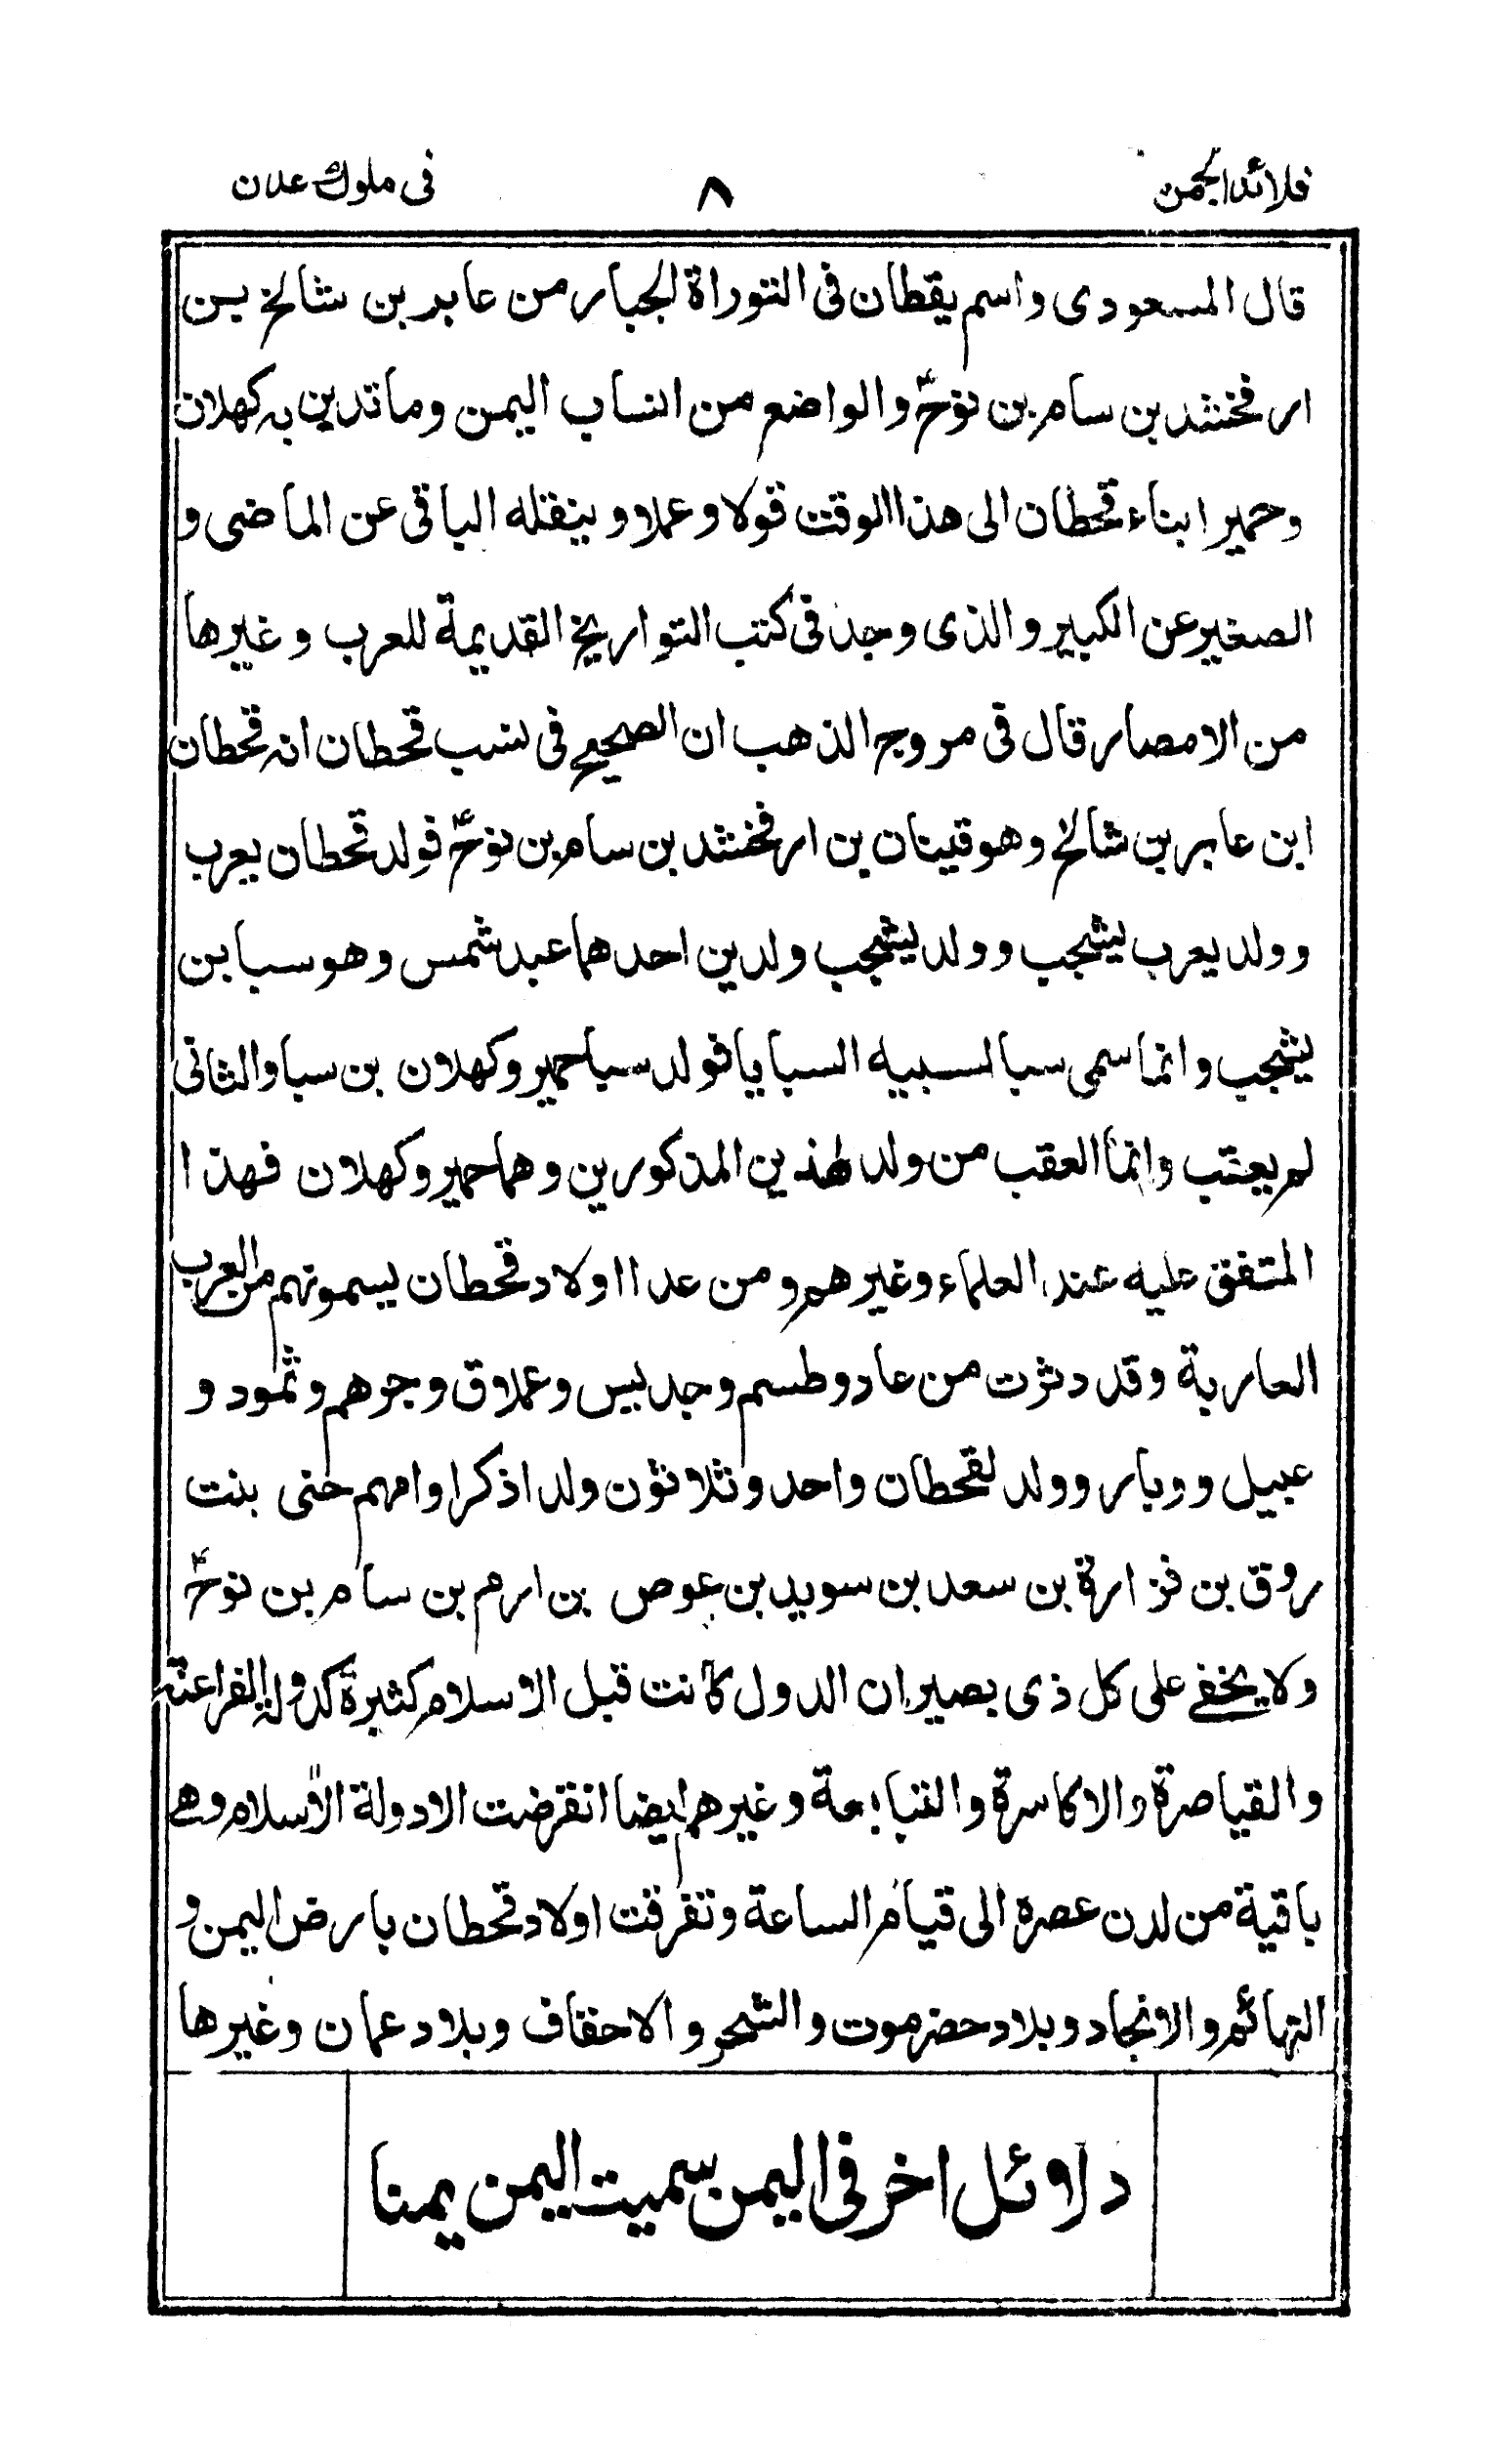 قلائد الجمن ٨ فى ملوك عدن
قال المسعودى واسم يقطان فى التوراة الجبار من عابر بن شالخ بن
ارفخشد بن سام بن نوحؑ والواضع من انساب اليمن وما تدين به كهلان
وحمير ابناء قحطان الى هذا الوقت قولا وعملا وينقله الباقى عن الماضى و
الصغير عن الكبير والذى وجد فى كتب التواريخ القديمة للعرب وغيرها
من الامصار قال فى مروج الذهب ان الصحيح فى نسب قحطان انه قحطان
ابن عابر بن شالخ وهو قينان بن ارفخشد بن سام بن نوحؑ فولد قحطان يعرب
وولد يعرب يشجب وولد يشجب ولدين احدهما عبد شمس وهو سبا بن
يشجب وانما سمى سبا لسبيه السبايا فولد سبا حمير وكهلان بن سبا والثانى
لم يعتب وانما العقب من ولد لهذين المذكورين وهما حمير وكهلان فهذا
المتفق عليه عند العلماء وغيرهم ومن عدا اولاد قحطان يسمونهم من العرب
العاربة وقد دثرت من عاد وطسم وجديس وعملاق وجرهم وثمود و
عبيل ووبار وولد لقحطان واحد وثلاثون ولدا ذكرا وامهم حنى بنت
روق بن فزارة بن سعد بن سويد بن عوص بن ارم بن سام بن نوحؑ
ولا يخفى على كل ذى بصير ان الدول كانت قبل الاسلام كثيرة كدولة الفراعنة
والقياصرة والاكاسرة والتبابعة وغيرهم ايضا انقرضت الا دولة الاسلام وهى
باقية من لدن عصره الى قيام الساعة وتفرقت اولاد قحطان بارض اليمن و
التهائم والانجاد وبلاد حضرموت والشحر والاحقاف وبلاد عمان وغيرها
دلائل اخر فى اليمن سميت اليمن يمنا